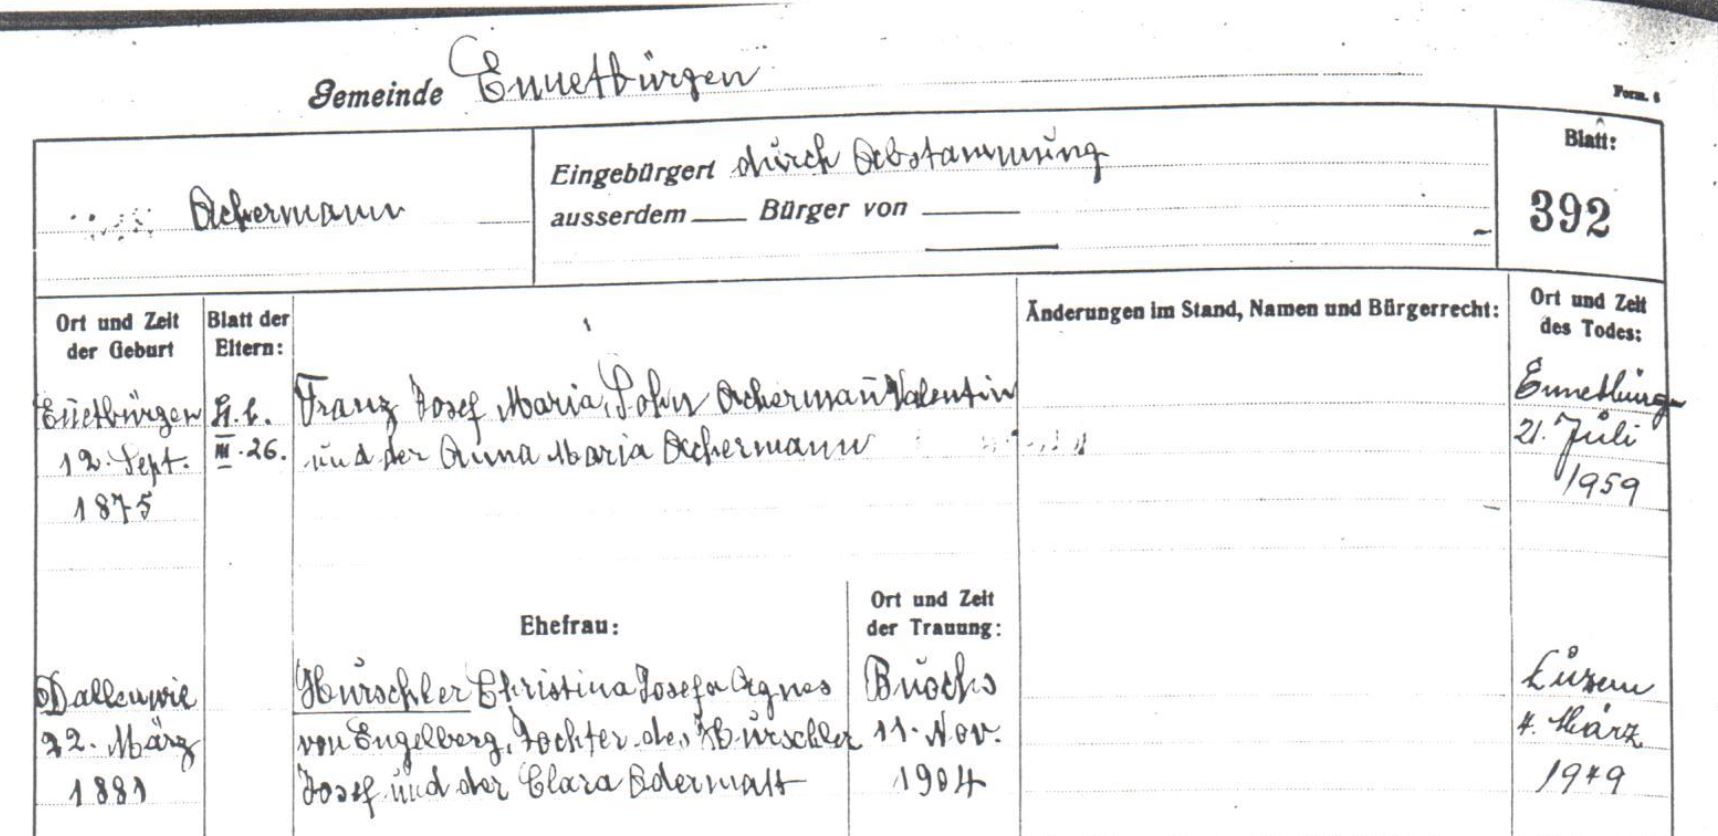 Gemeinde Ennetbürgen
Form. 6
Achermann
Eingebürgert durch Abstammung
ausserdem Bürger von
Blatt:
392
Ort und Zeit
der Geburt
Blatt der
Eltern:
Änderungen im Stand, Namen und Bürgerrecht:
Ort und Zeit
des Todes:
Eñetbürgen
12. Sept.
1875
III. 26.
Franz Josef Maria, Sohn Achermañ Valentin
und der Anna Maria Achermann
Ennetbürgen
21. Juli
1959
Ehefrau:
Ort und Zeit
der Trauung:
Dallenwil
22. März
1881
Hurschler Christina Josefa Agnes
von Engelberg, Tochter des Hurschler
Josef und der Clara Odermatt
Buochs
11. Nov.
1904
Luzern
4. März
1949